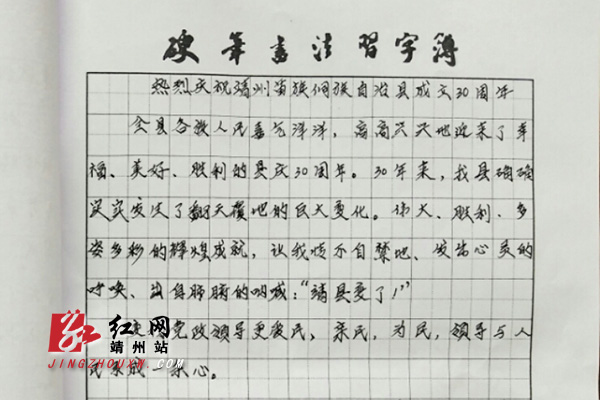 硬笔书法習字簿
热烈庆祝靖州苗族侗族自治县成立30周年
全县各族人民喜气洋洋，高高兴兴地迎来了幸
福、美好、胜利的县庆30周年。30年来，我县确确
实实发生了翻天覆地的巨大变化。伟大、胜利、多
姿多彩的辉煌成就，让我情不自禁地、发出心灵的
呼唤、出自肺腑的呐喊：“靖县变了！”
党政领导更爱民、亲民，为民，领导与人
民 成一条心。
红网
靖州站
JINGZHOUXW.COM